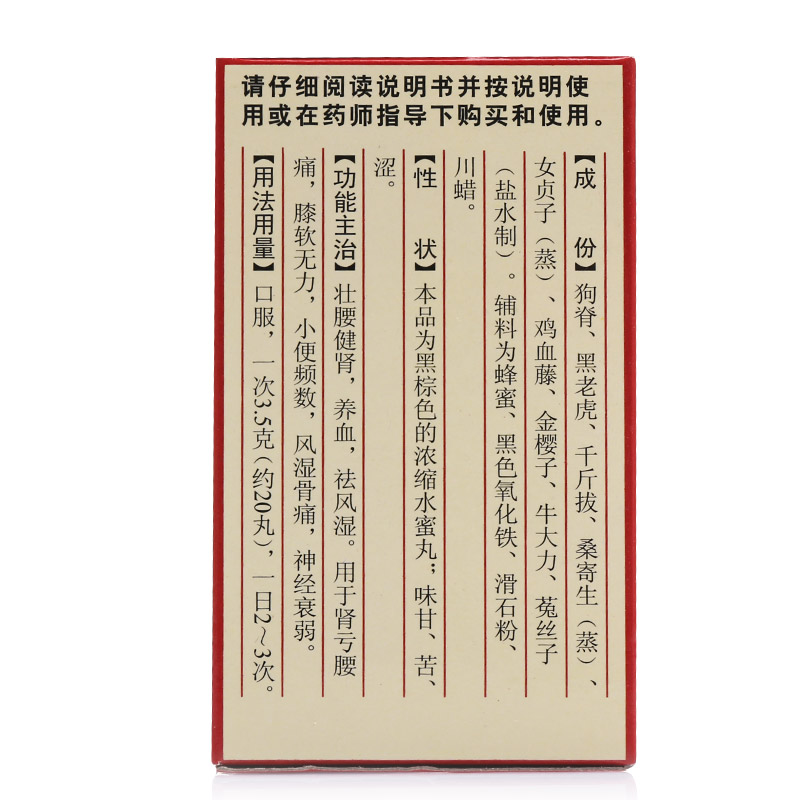 请仔细阅读说明书并按说明使
用或在药师指导下购买和使用。
【成份】狗脊、黑老虎、千斤拔、桑寄生（蒸）、
女贞子（蒸）、鸡血藤、金樱子、牛大力、菟丝子
（盐水制）。辅料为蜂蜜、黑色氧化铁、滑石粉、
川蜡。
【性状】本品为黑棕色的浓缩水蜜丸；味甘、苦、
涩。
【功能主治】壮腰健肾，养血，祛风湿。用于肾亏腰
痛，膝软无力，小便频数，风湿骨痛，神经衰弱。
【用法用量】口服，一次3.5克（约20丸），一日2～3次。